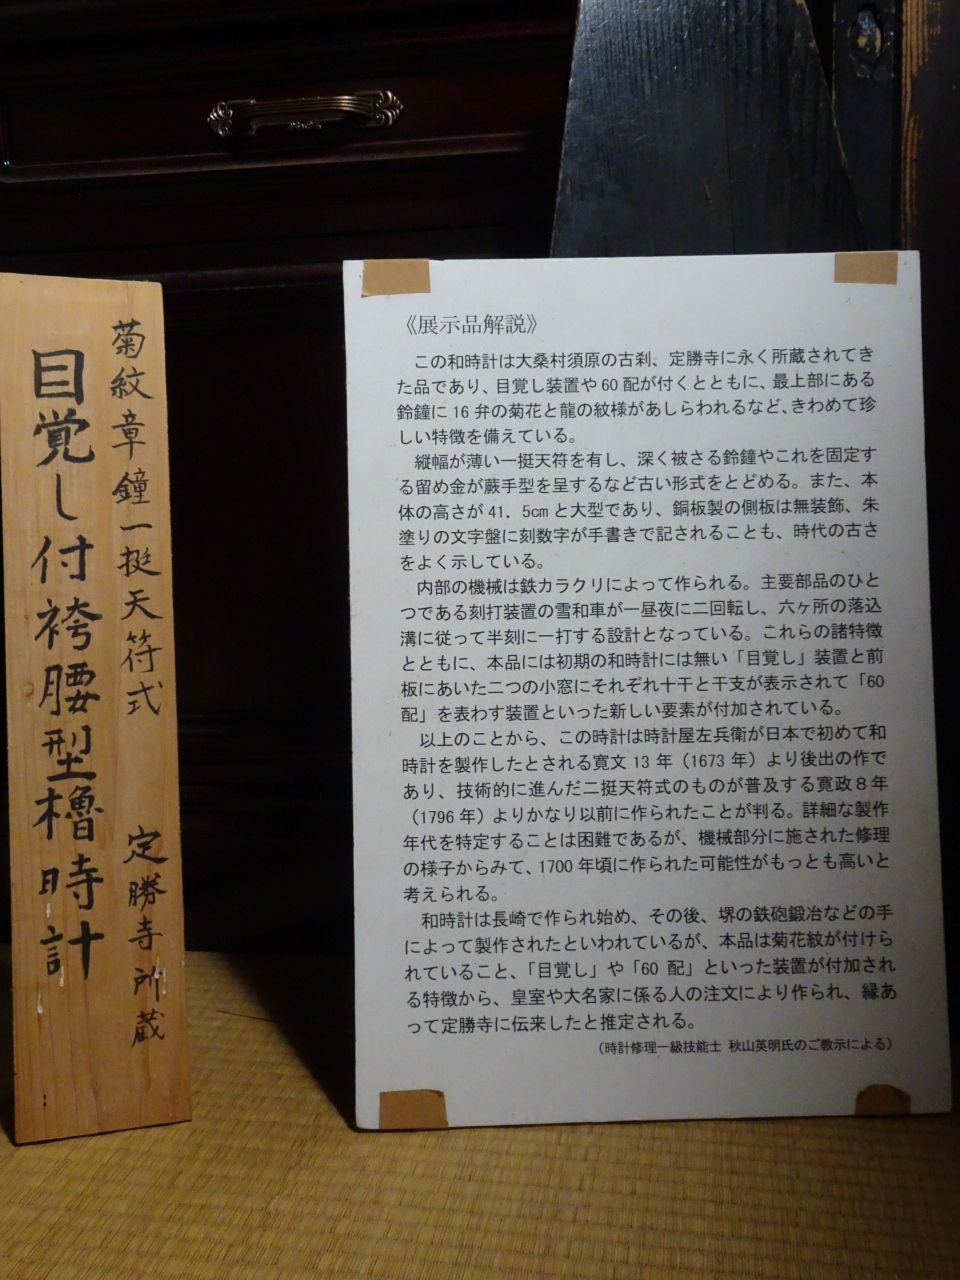 菊紋章鐘一挺天符式 定勝寺所蔵
目覚し付袴腰型櫓時計
《展示品解説》
この和時計は大桑村須原の古刹、定勝寺に永く所蔵されてき
た品であり、目覚し装置や60配が付くとともに、最上部にある
鈴鐘に16弁の菊花と龍の紋様があしらわれるなど、きわめて珍
しい特徴を備えている。
縦幅が薄い一挺天符を有し、深く被さる鈴鐘やこれを固定す
る留め金が蕨手型を呈するなど古い形式をとどめる。また、本
体の高さが41．5cmと大型であり、銅板製の側板は無装飾、朱
塗りの文字盤に刻数字が手書きで記されることも、時代の古さ
をよく示している。
内部の機械は鉄カラクリによって作られる。主要部品のひと
つである刻打装置の雪和車が一昼夜に二回転し、六ヶ所の落込
溝に従って半刻に一打する設計となっている。これらの諸特徴
とともに、本品には初期の和時計には無い「目覚し」装置と前
板にあいた二つの小窓にそれぞれ十干と干支が表示されて「60
配」を表わす装置といった新しい要素が付加されている。
以上のことから、この時計は時計屋左兵衛が日本で初めて和
時計を製作したとされる寛文13年（1673年）より後出の作で
あり、技術的に進んだ二挺天符式のものが普及する寛政８年
（1796年）よりかなり以前に作られたことが判る。詳細な製作
年代を特定することは困難であるが、機械部分に施された修理
の様子からみて、1700年頃に作られた可能性がもっとも高いと
考えられる。
和時計は長崎で作られ始め、その後、堺の鉄砲鍛冶などの手
によって製作されたといわれているが、本品は菊花紋が付けら
れていること、「目覚し」や「60配」といった装置が付加され
る特徴から、皇室や大名家に係る人の注文により作られ、縁あ
って定勝寺に伝来したと推定される。
（時計修理一級技能士 秋山英明氏のご教示による）